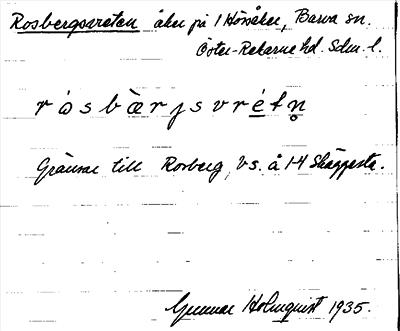 Rosbergsvreten åker på 1 Hörsåker, Barva sn.
Öster-Rekarne hd. Sdm. l.
r ó s b æ̀ r j s v r é t n̥
Gränsar till Rosberg, bs. å 1-4 Skäggesta.
Gunnar Holmquist 1935.